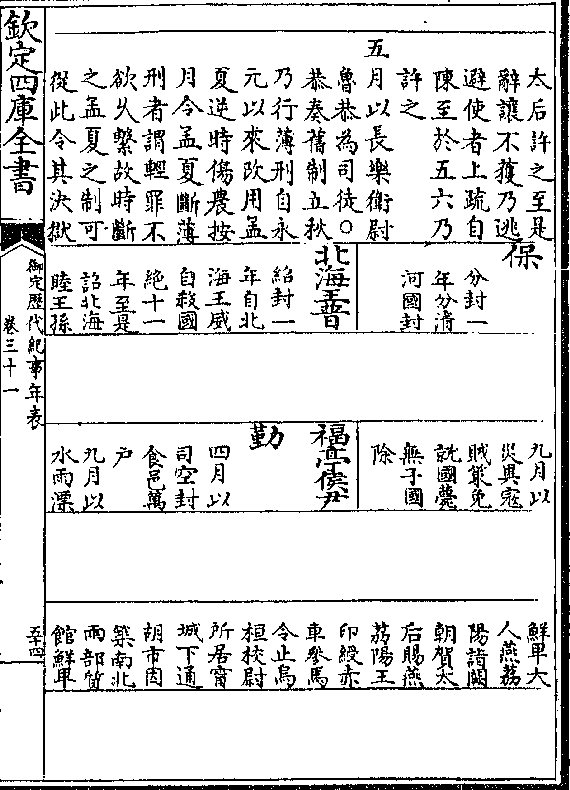 欽定四庫全書
御定歷代紀事年表
卷三十一
五十四
太后許之至是
辭讓不獲乃逃
避使者上疏自
陳至於五六乃
許之
五月以長樂衛尉
魯恭為司徒○
恭奏舊制立秋
乃行薄刑自永
元以來改用孟
夏逆時傷農按
月令孟夏斷薄
刑者謂輕罪不
欲久繫故時斷
之孟夏之制可
從此令其決獄
保
分封一
年分清
河國封
北海王普
紹封一
年自北
海王威
自殺國
絶十一
年至是
詔北海
睦王孫
九月以
災異寇
賊策免
就國薨
無子國
除
福亭侯尹
勤
四月以
司空封
食邑萬
户
九月以
水雨漂
鮮卑大
人燕荔
陽詣闕
朝賀太
后賜燕
荔陽王
印綬赤
車參馬
令止烏
桓校尉
所居甯
城下通
胡市因
築南北
兩部質
館鮮卑